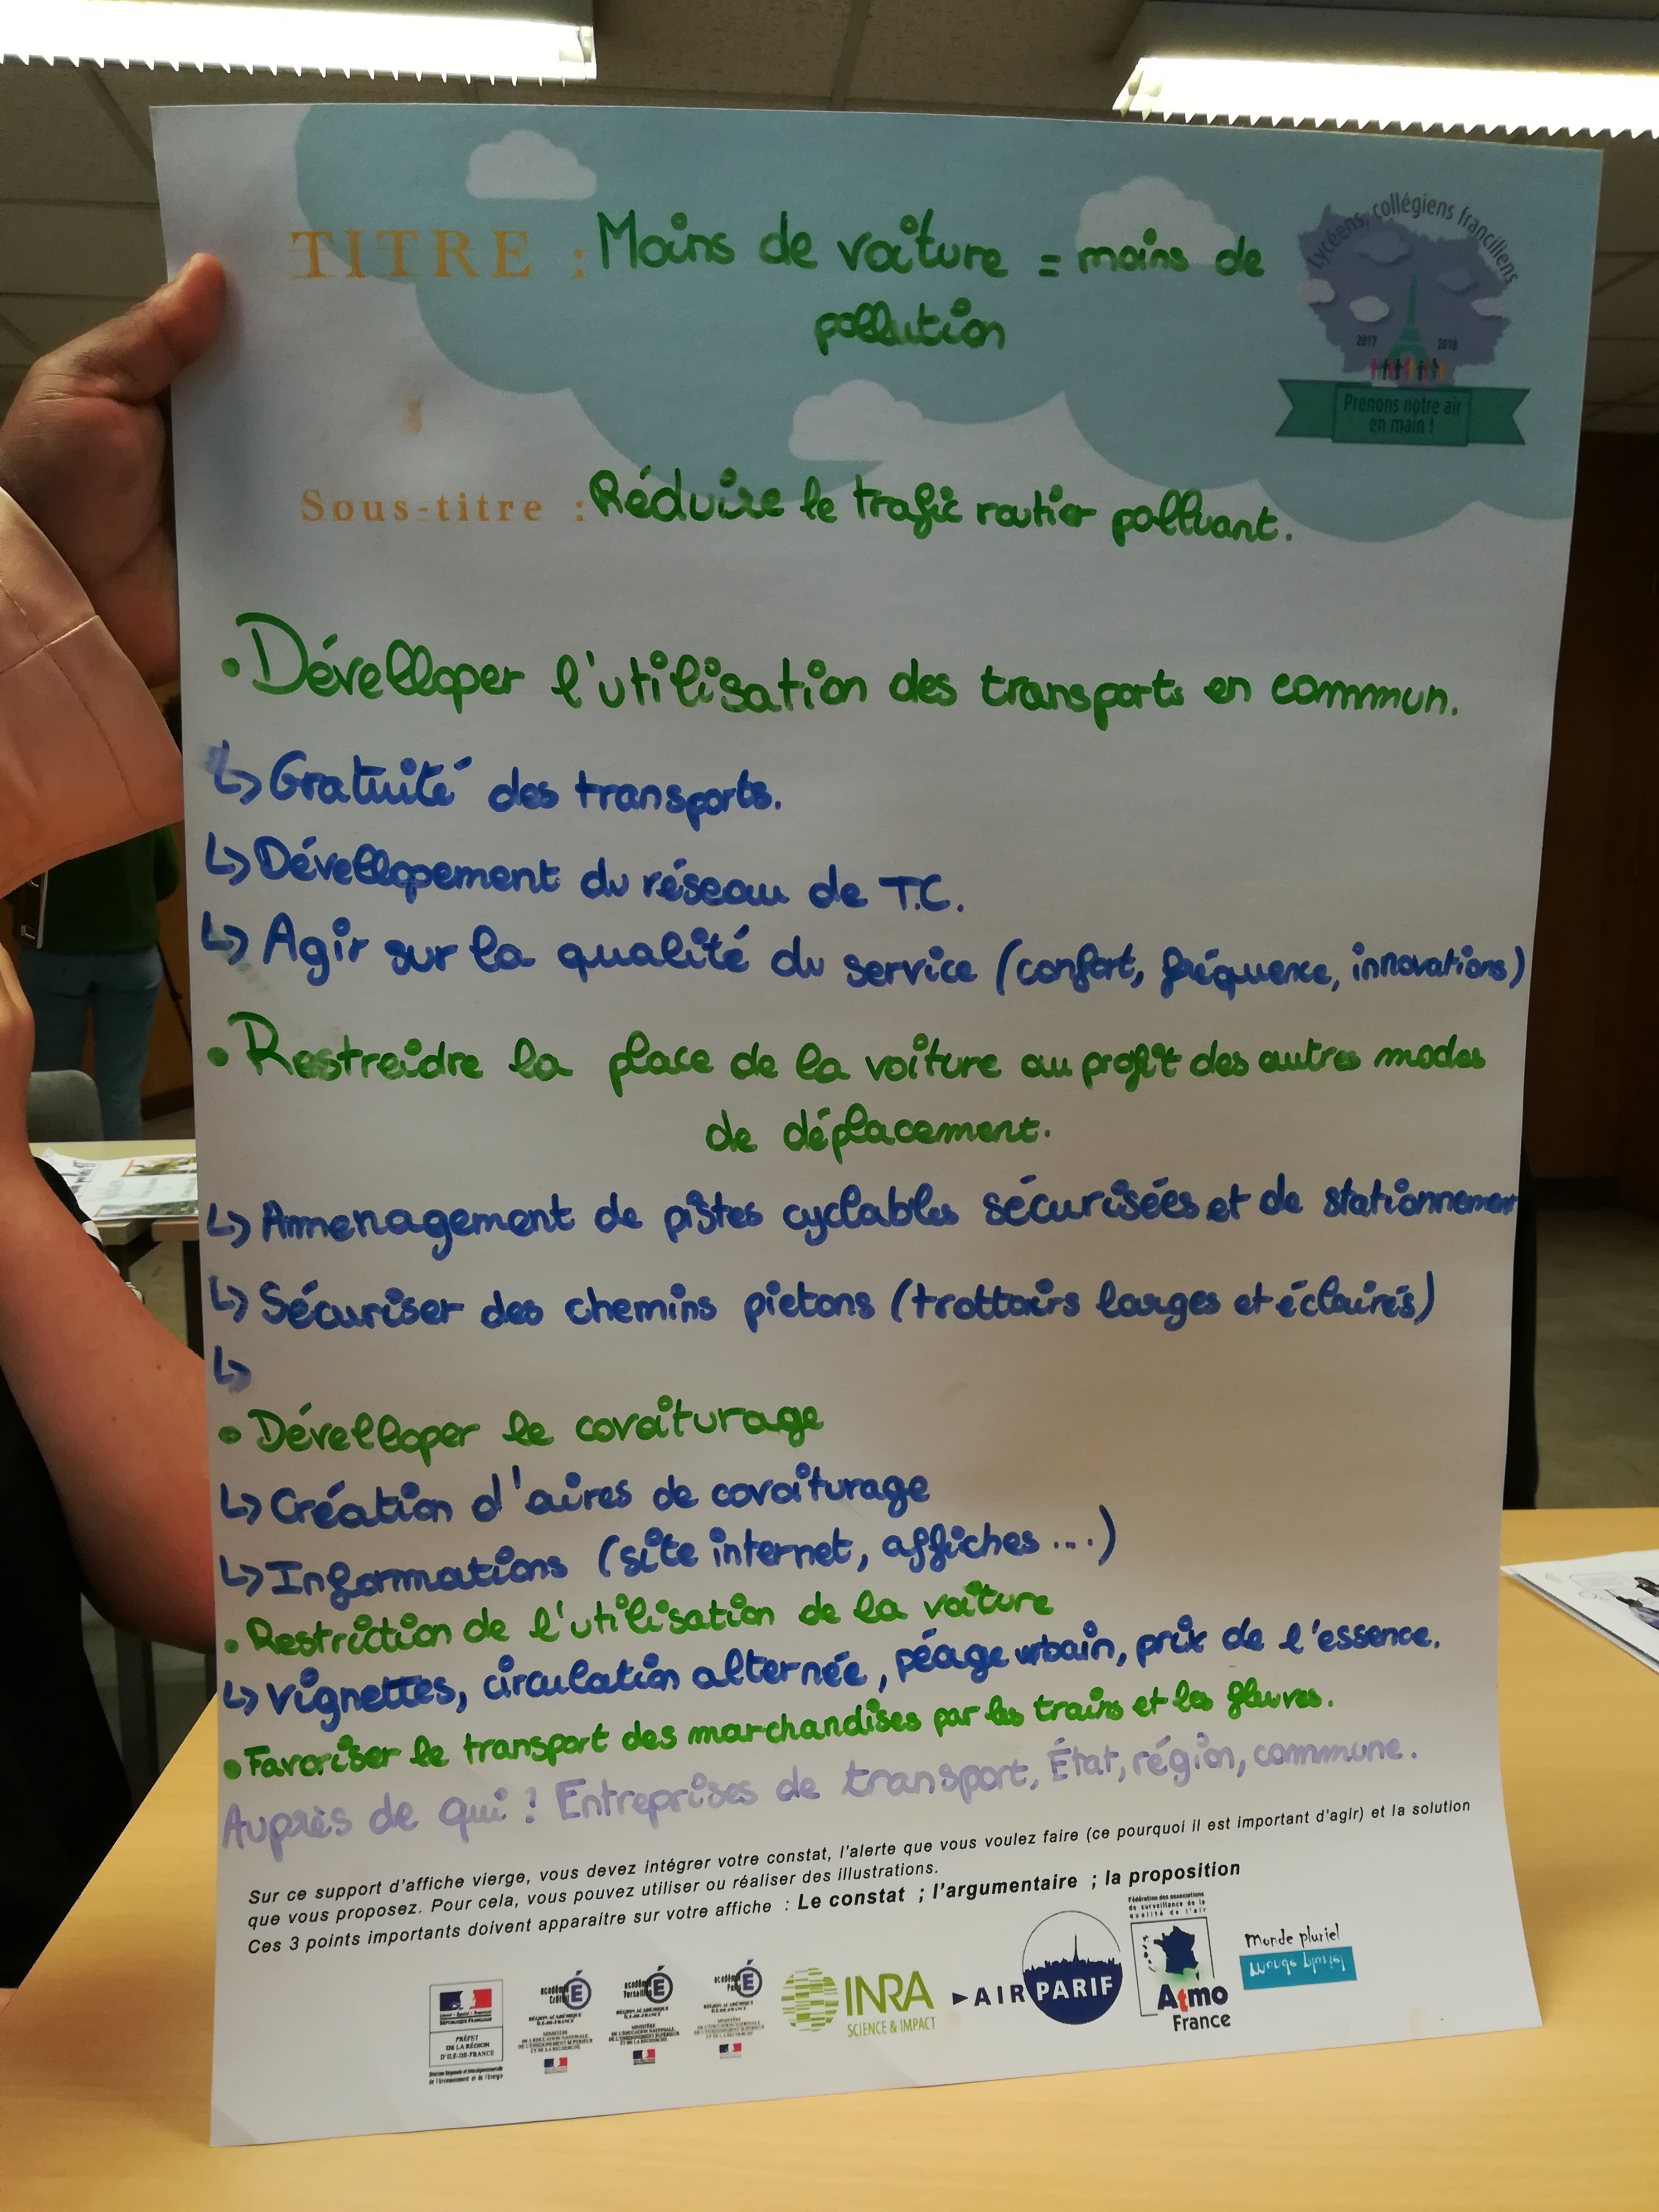 TITRE : Moins de voiture = moins de
pollution
Lycéens, collégiens franciliens
2017 2018
Prenons notre air
en main !
Sous-titre : Réduire le trafic routier polluant.
• Dévelloper l'utilisation des transports en commun.
↳ Gratuité des transports.
↳ Dévellopement du réseau de T.C.
↳ Agir sur la qualité du service (confort, fréquence, innovations)
• Restreidre la place de la voiture au profit des autres modes
de déplacement.
↳ Amenagement de pistes cyclables sécurisées et de stationnement
↳ Sécuriser des chemins pietons (trottoirs larges et éclairés)
↳
• Dévelloper le covoiturage
↳ Création d'aires de covoiturage
↳ Informations (site internet, affiches ...)
• Restriction de l'utilisation de la voiture
↳ Vignettes, circulation alternée, péage urbain, prix de l'essence.
• Favoriser le transport des marchandises par les trains et les fleuves.
Auprès de qui ? Entreprises de transport, État, région, commune.
Sur ce support d'affiche vierge, vous devez intégrer votre constat, l'alerte que vous voulez faire (ce pourquoi il est important d'agir) et la solution
que vous proposez. Pour cela, vous pouvez utiliser ou réaliser des illustrations.
Ces 3 points importants doivent apparaitre sur votre affiche : Le constat ; l'argumentaire ; la proposition
RÉPUBLIQUE FRANÇAISE
PRÉFET
DE LA RÉGION
D'ILE-DE-FRANCE
académie Créteil
académie Versailles
académie Paris
INRA
SCIENCE & IMPACT
AIR PARIF
Fédération des associations
de surveillance de la
qualité de l'air
Atmo
France
Monde pluriel
Monde pluriel